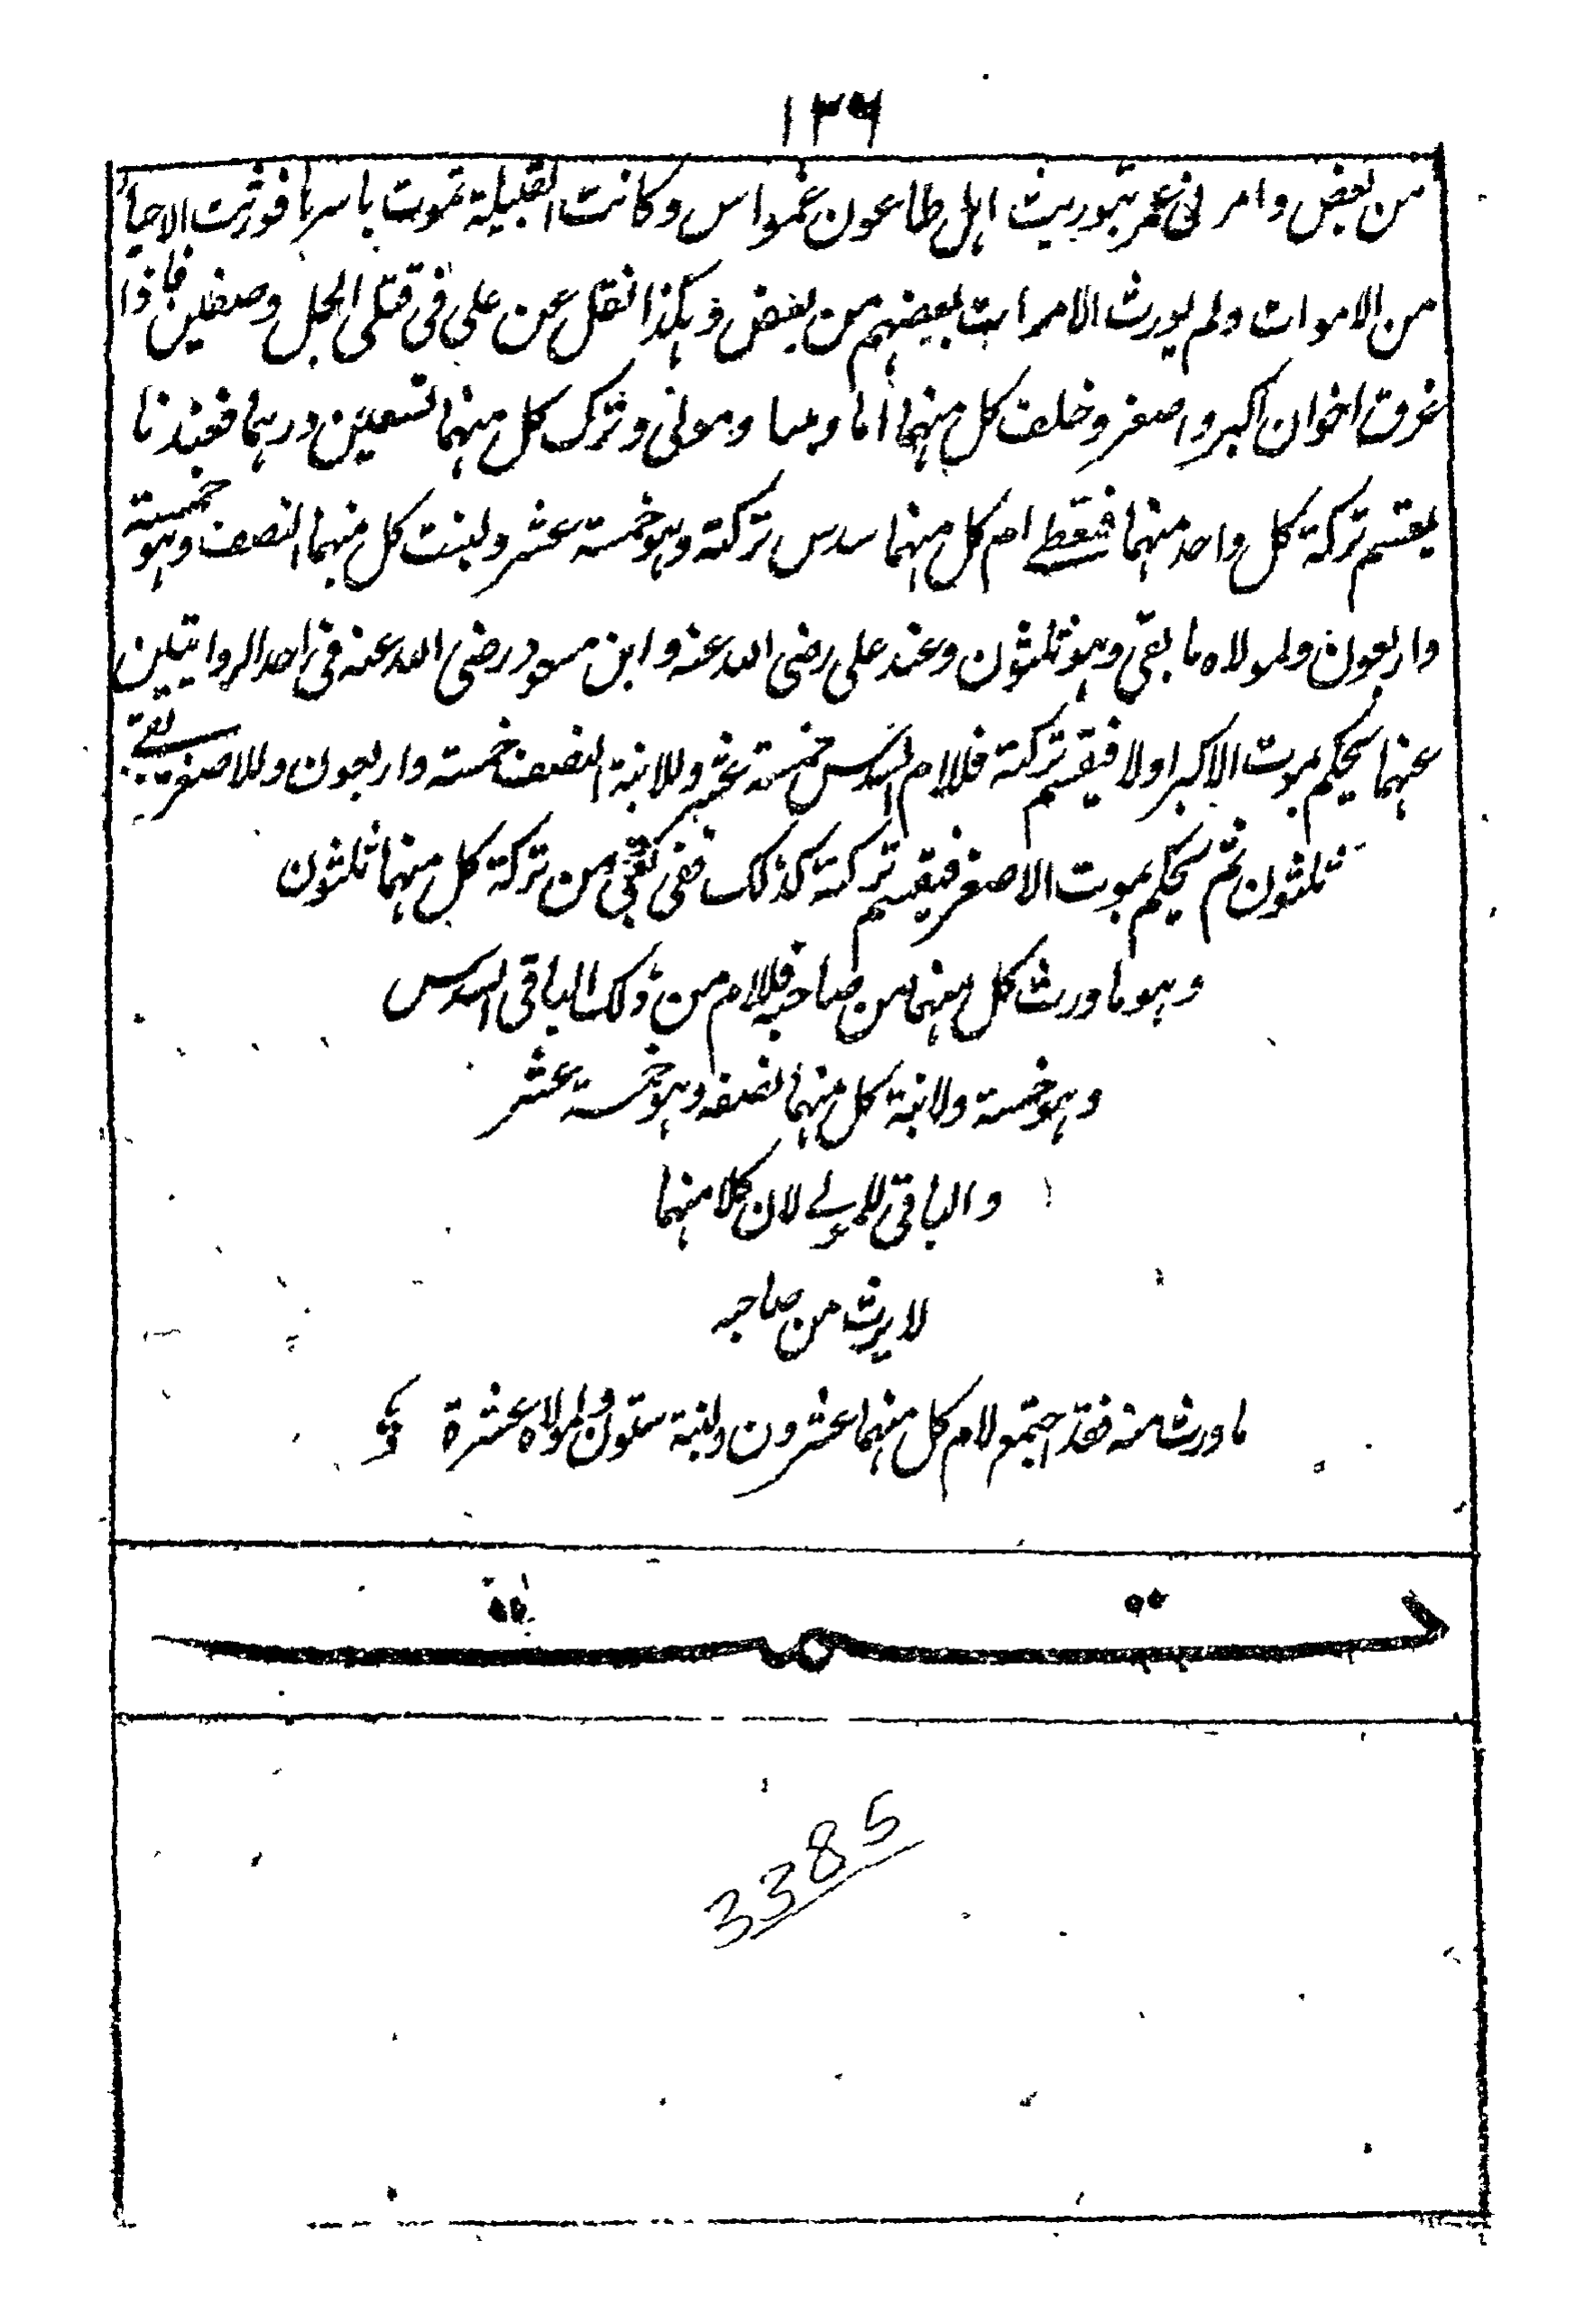 ١٣٦
من بعض وامرنى عمر بتوريث اهل طاعون عمواس وكانت القبيلة تموت باسرها فورثت الاحياء
من الاموات ولم يورث الاموات بعضهم من بعض وهكذا نقل عن على فى قتلى الجمل وصفين فاذا
غرق اخوان اكبر واصغر وخلف كل منهما اما وبنتا ومولى وترك كل منهما تسعين درهما فعندنا
يقسم تركة كل واحد منهما فتعطى ام كل منهما سدس تركته وهو خمسة عشر ولبنت كل منهما النصف وهو خمسة
واربعون ولمولاه ما بقى وهو ثلثون وعند على رضى الله عنه وابن مسعود رضى الله عنه فى احد الروايتين
عنهما يحكم بموت الاكبر اولا فيقسم تركته فللام السدس خمسة عشر وللابنة النصف خمسة واربعون وللاصغر بقى
ثلثون ثم يحكم بموت الاصغر فيقسم تركته كذلك ففى بقى من تركة كل منهما ثلثون
وهو ما ورث كل منهما من صاحبه فللام من ذلك الباقى السدس
وهو خمسة ولابنة كل منهما نصفه وهو خمسة عشر
والباقى للمولى لان كلا منهما
لا يرث من صاحبه
ما ورث منه فقد اجتمع لام كل منهما عشرون ولبنته ستون ولمولاه عشرة
3385